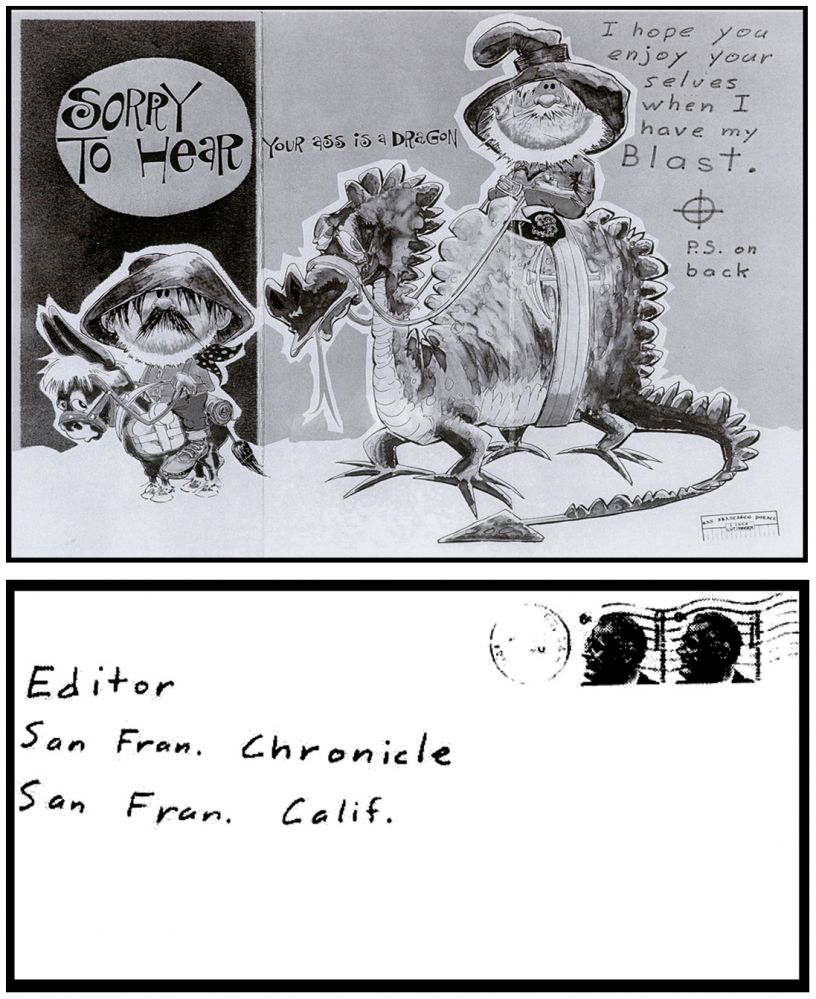 SORRY
TO HEAR
YOUR ASS IS A DRAGON
I hope you
enjoy your
selves
when I
have my
Blast.
P.S. on
back
Editor
San Fran. Chronicle
San Fran. Calif.